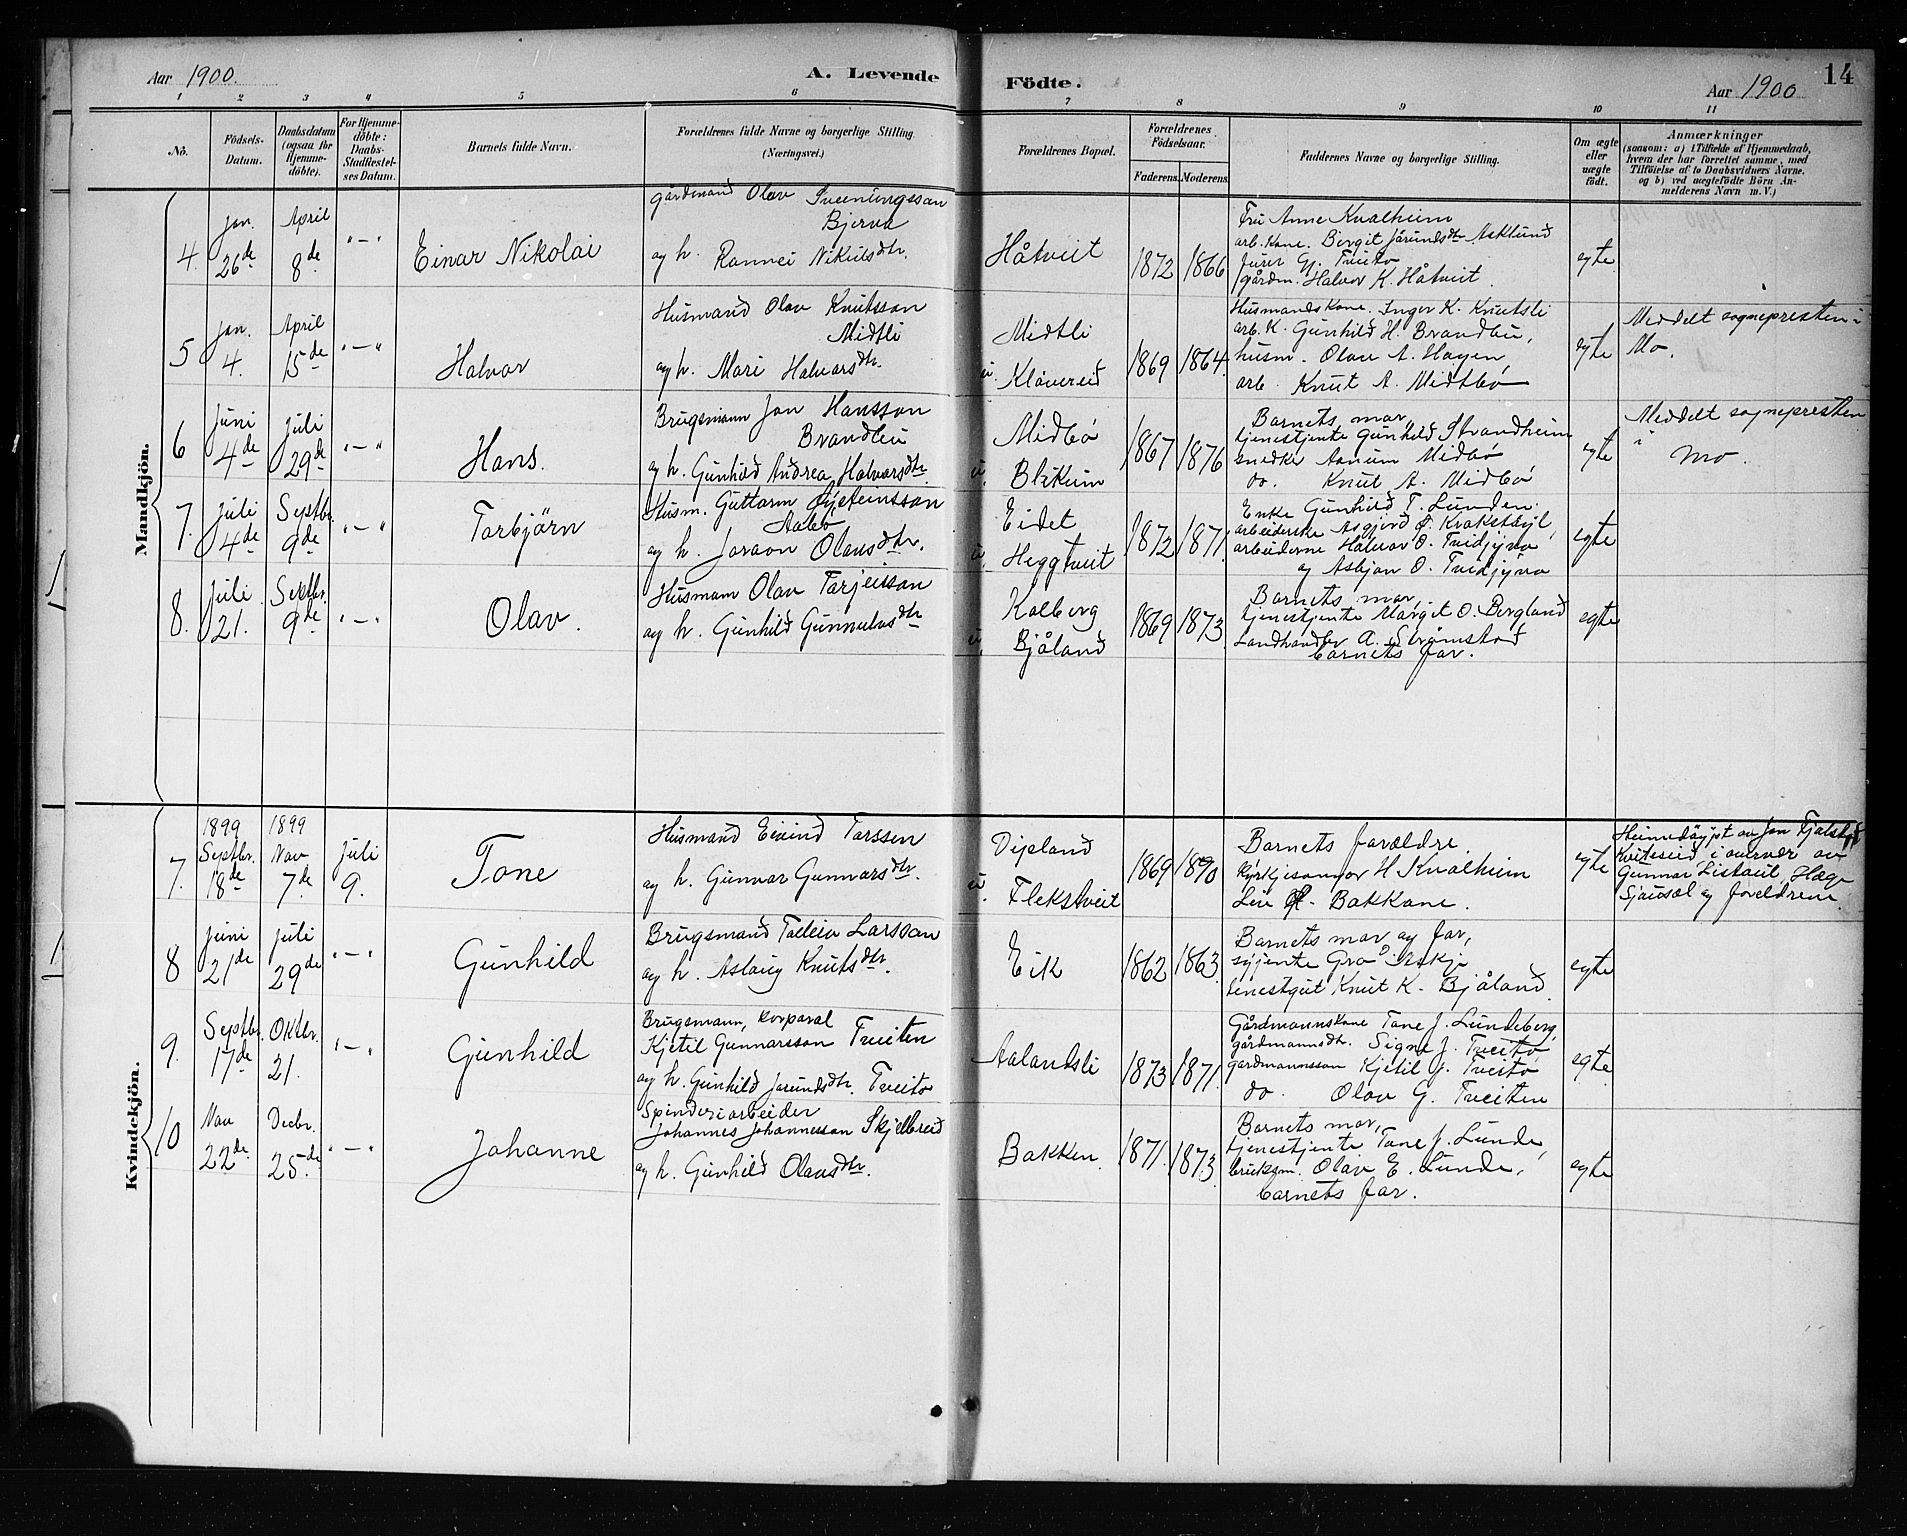 Aar 1900.
A. Levende
Födte.
Aar 1900
14
1 2 3 4 5 6 7 8 9 10 11
No.
Födsels-
Datum.
Daabsdatum
(ogsaa for
Hjemme-
döbte).
For Hjemme-
döbte:
Daabs-
Stadfæstel-
ses Datum.
Barnets fulde Navn.
Forældrenes fulde Navne og borgerlige Stilling.
(Næringsvei.)
Forældrenes Bopæl.
Forældrenes
Födselsaar.
Faderens. Moderens.
Faddernes Navne og borgerlige Stilling.
Om ægte
eller
uægte
født.
Anmærkninger
(saasom: a) i Tilfælde af Hjemmedaab,
hvem der har forrettet samme, med
Tilföielse af to Daabsvidners Navne,
og b) ved uægtefödte Börn An-
melderens Navn m. V.)
Mandkjön.
4.
Jan.
26de
April
8de
"-"
Einar Nikolai
gårdmand Olav Sveinungsson
Bjervå
ag h. Rannei Nikulsdtr.
Håtveit
1872
1866
Fru Anne Kvalheim
arb. kone. Birgit Jörundsdtr Asklund
gårdm. Halvor K. Håtveit.
egte
5
Jan.
4.
April
15de
"-"
Halvor
Husmand Olav Knutsson
Midtli
ag h. Mari Halvorsdtr.
Midtli
u. Klåvereid
1869
1864
Husmandskone. Inger K. Knutsli
arb. K. Gunhild H. Brandlie,
husm. Olav A. Hagen,
arb. Knut A. Midtbø
egte
Meddelt sognepresten i
Mo.
6
Juni
4de
Juli
29de
"-"
Hans.
Brugsmann Jon Hansson
Brandlie
ag h. Gunhild Andrea Halvorsdtr.
Midbö
u. Blekum
1867
1876
Barnets mor,
tjenestjente Gunhild Strandheim
snedker Aanum Midbø
do. Knut A. Midbø
egte
Meddelt sognepresten
i
Mo.
7.
Juli
4de
Septbr.
9de
"-"
Torbjörn
Husm. Guttorm Øysteinsson
Aabø
ag h. Joraan Olavsdtr.
Eidet
u. Heggtveit
1872
1871
Enke Gunhild T. Lunden.
arbeiderske Asgjerd
arbeiderne Halvor O. Tvidjyno
og Asbjøn O. Tvidjyno
egte
8.
Juli
21.
Septbr.
9de
"-"
Olav.
Husmann Olav Tarjeisson
ag h. Gunhild Gunnulvsdtr
Kalberg
u. Bjåland
1869
1873
Barnets mor,
tjenestjente Margit O. Bergland
Landhandler A. Strömstad
barnets far.
egte
Kvindekjön.
7.
1899
Septbr.
18de
1899
Nov
7de
Juli
9.
Tone
Husmand Eivind Tarssen
ag h. Gunvor Gunnarsdtr.
Vipland
u. Flekstveit
1869
1870
Barnets foreldre.
kyrkjesongor H Kvalheim
Leiv Bakkane.
egte
Heimedöypt av Jon Fjalestad
Kviteseid, i nærver av
Gunnar Listaul, Hæge
Sjausæl og foreldrene
8
Juni
21de
Juli
29de
"-"
Gunhild
Brugsmand Tolleiv Larsson
ag h. Aslaug Knutsdtr.
Eik
1862
1863
Barnets mor ag far,
syjente Gro Askje
tenestgut Knut K. Bjåland.
egte
9.
Septbr.
17de
Oktbr.
21.
"-"
Gunhild
Brugsmann, korporal
Kjetil Gunnarsson Tveiten
ag h. Gunhild Jorundsdtr. Tveito
Aalandsli
1873
1871
Gårdmannskone Tone J. Lundeberg,
gårdmannsdtr. Signe J. Tveito,
gardmannsson Kjetil J. Tveito
do. Olav G. Tveiten
egte
10
Nov
22de
Decbr.
25de
"-"
Johanne
Spinderiarbeider
Johannes Johannesson Skjelbreid
ag h. Gunhild Olavsdtr.
Bakken.
1871.
1873.
Barnets mor,
tjenestjente Tone J. Lunde,
bruksm. Olav E. Lunde,
barnets far.
egte